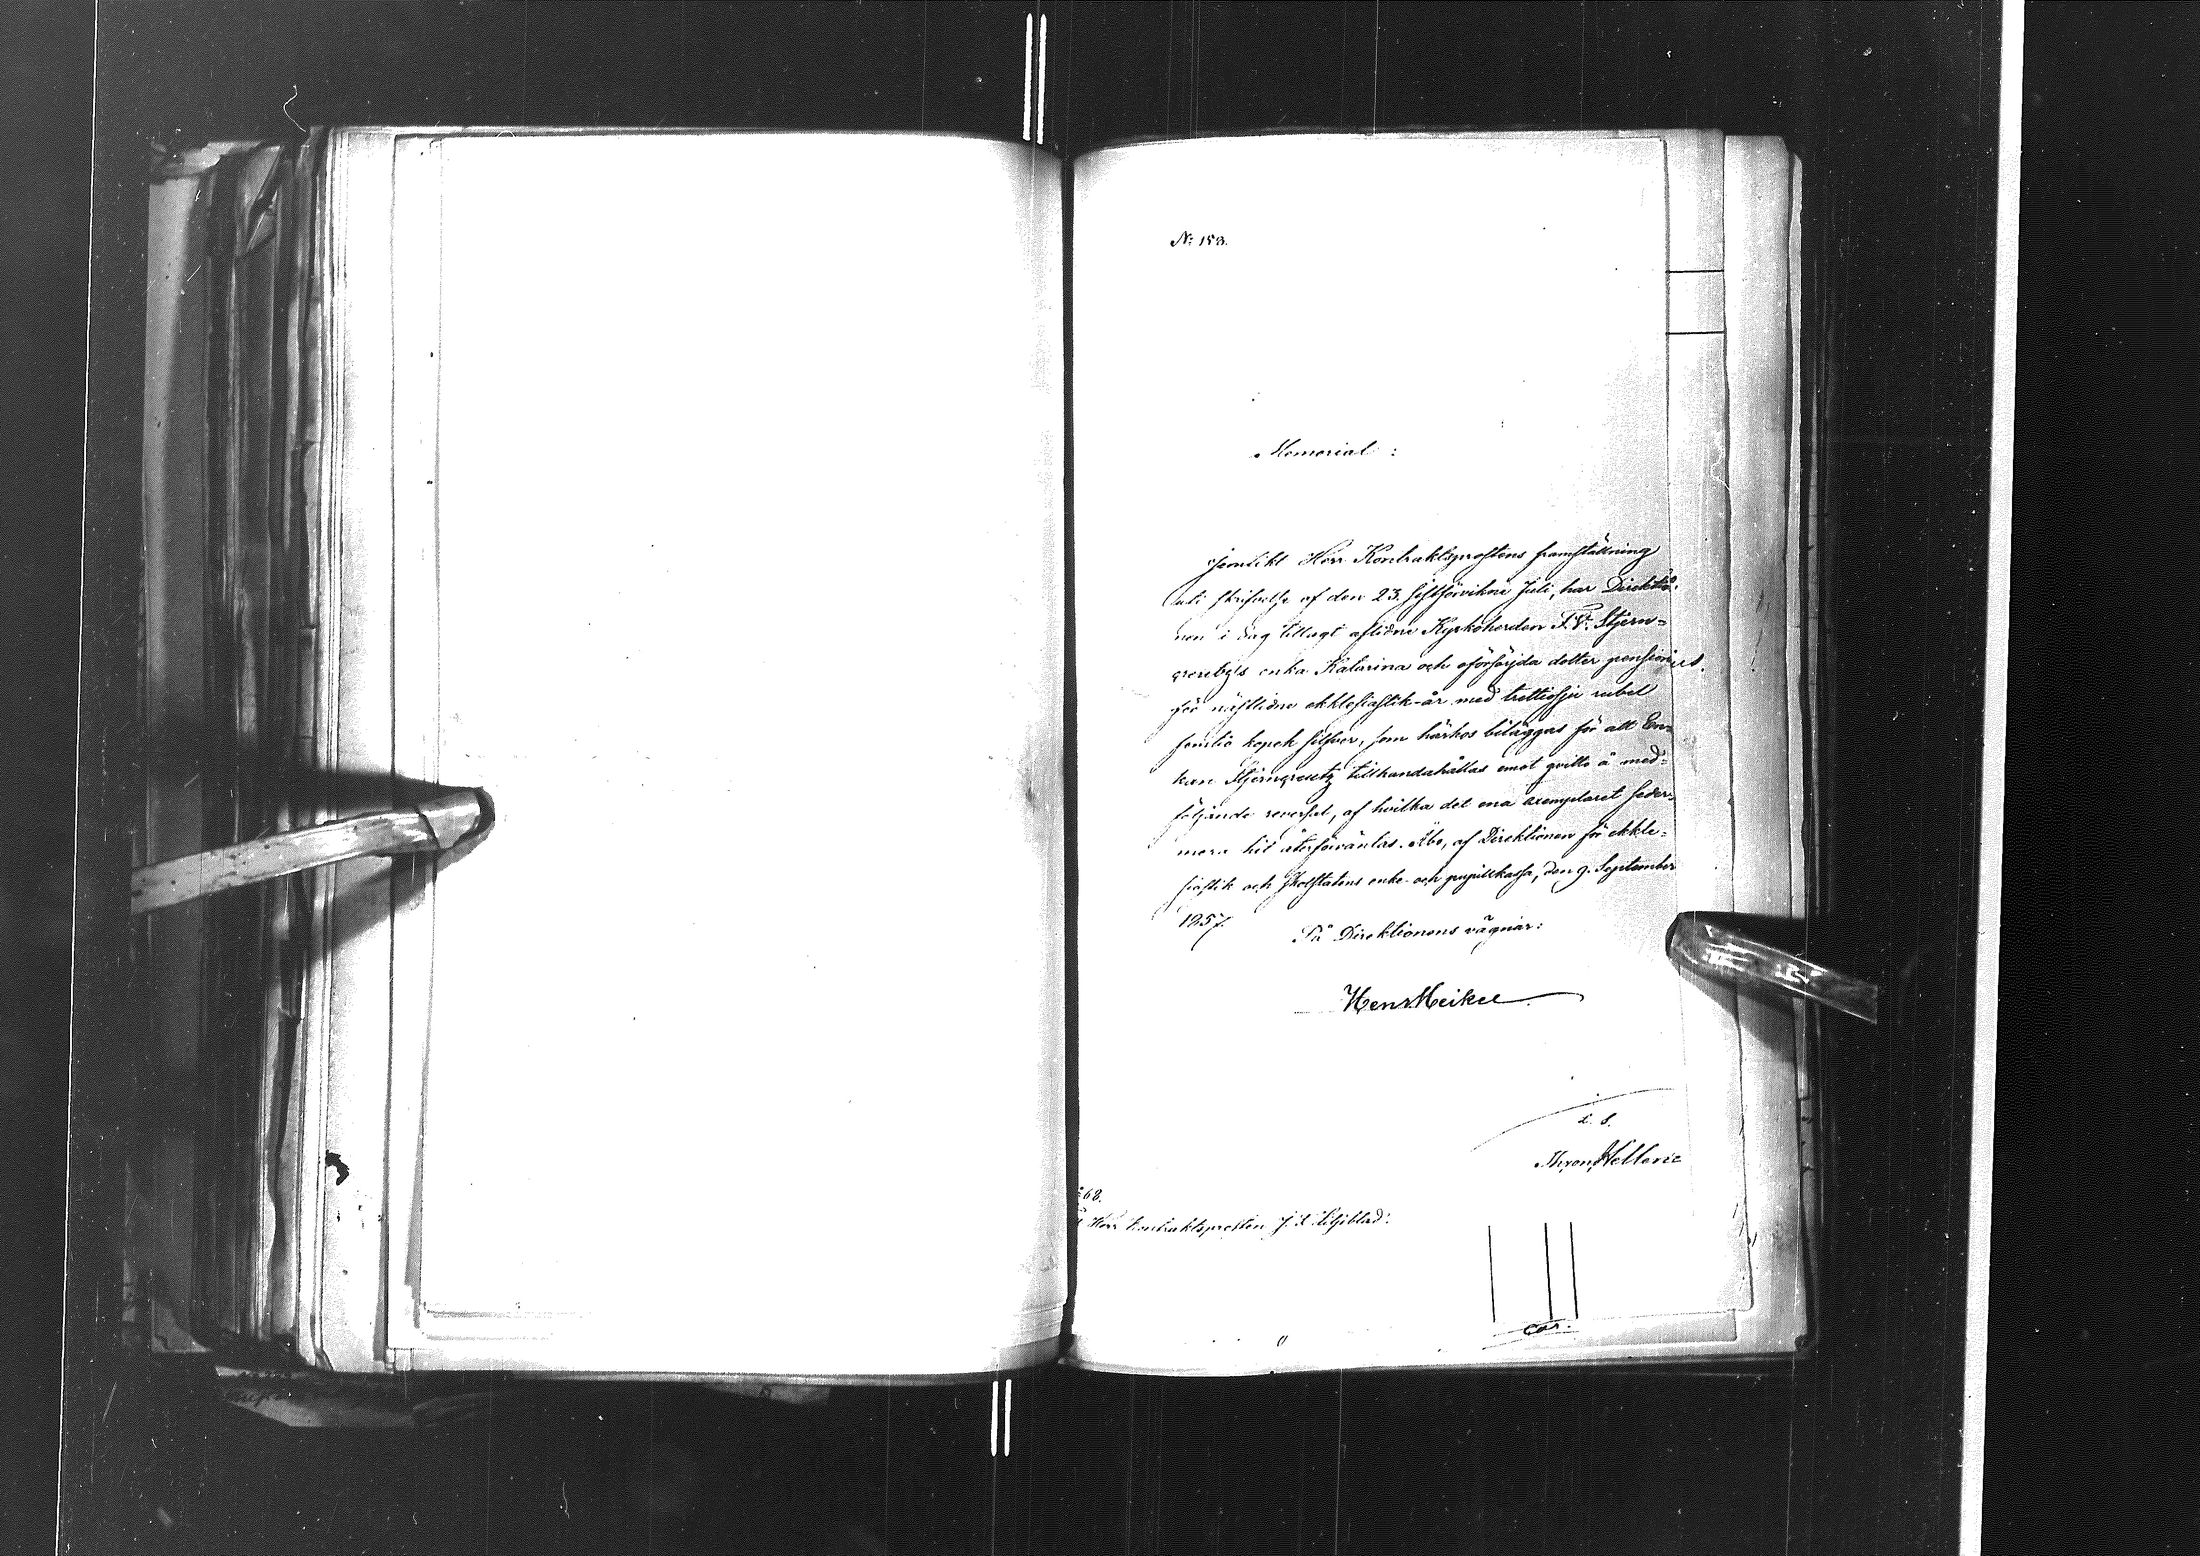 No 153.
Memorial:
Jemlikt Herr Kontraktsprostens framställning
uti skrifvelse af den 23. sistförvikne Juli, har Direktio-
nen i dag tillagt aflidne Kyrkoherden F. V. Stjern-
creutz's enka Katarina och oförsörjda dotter pension
för nästlidne ekklesiastik-år med trettiosju rubel
femtio kopek silfver, som härhos biläggas för att En-
kan Stjerncreutz tillhandahållas emot qvitto å med-
följande reversal, af hvilka det ena exemplaret seder-
mera hit återförväntas. Åbo, af Direktionen för ekkle-
siastik och skolstatens enke- och pupillkassa, den 9. September
1857.
På Direktionens vägnar:
Hens Heikel
L. S.
Myron
68.
Herr Kontraktsprosten J. F. Liljeblad.
cor.